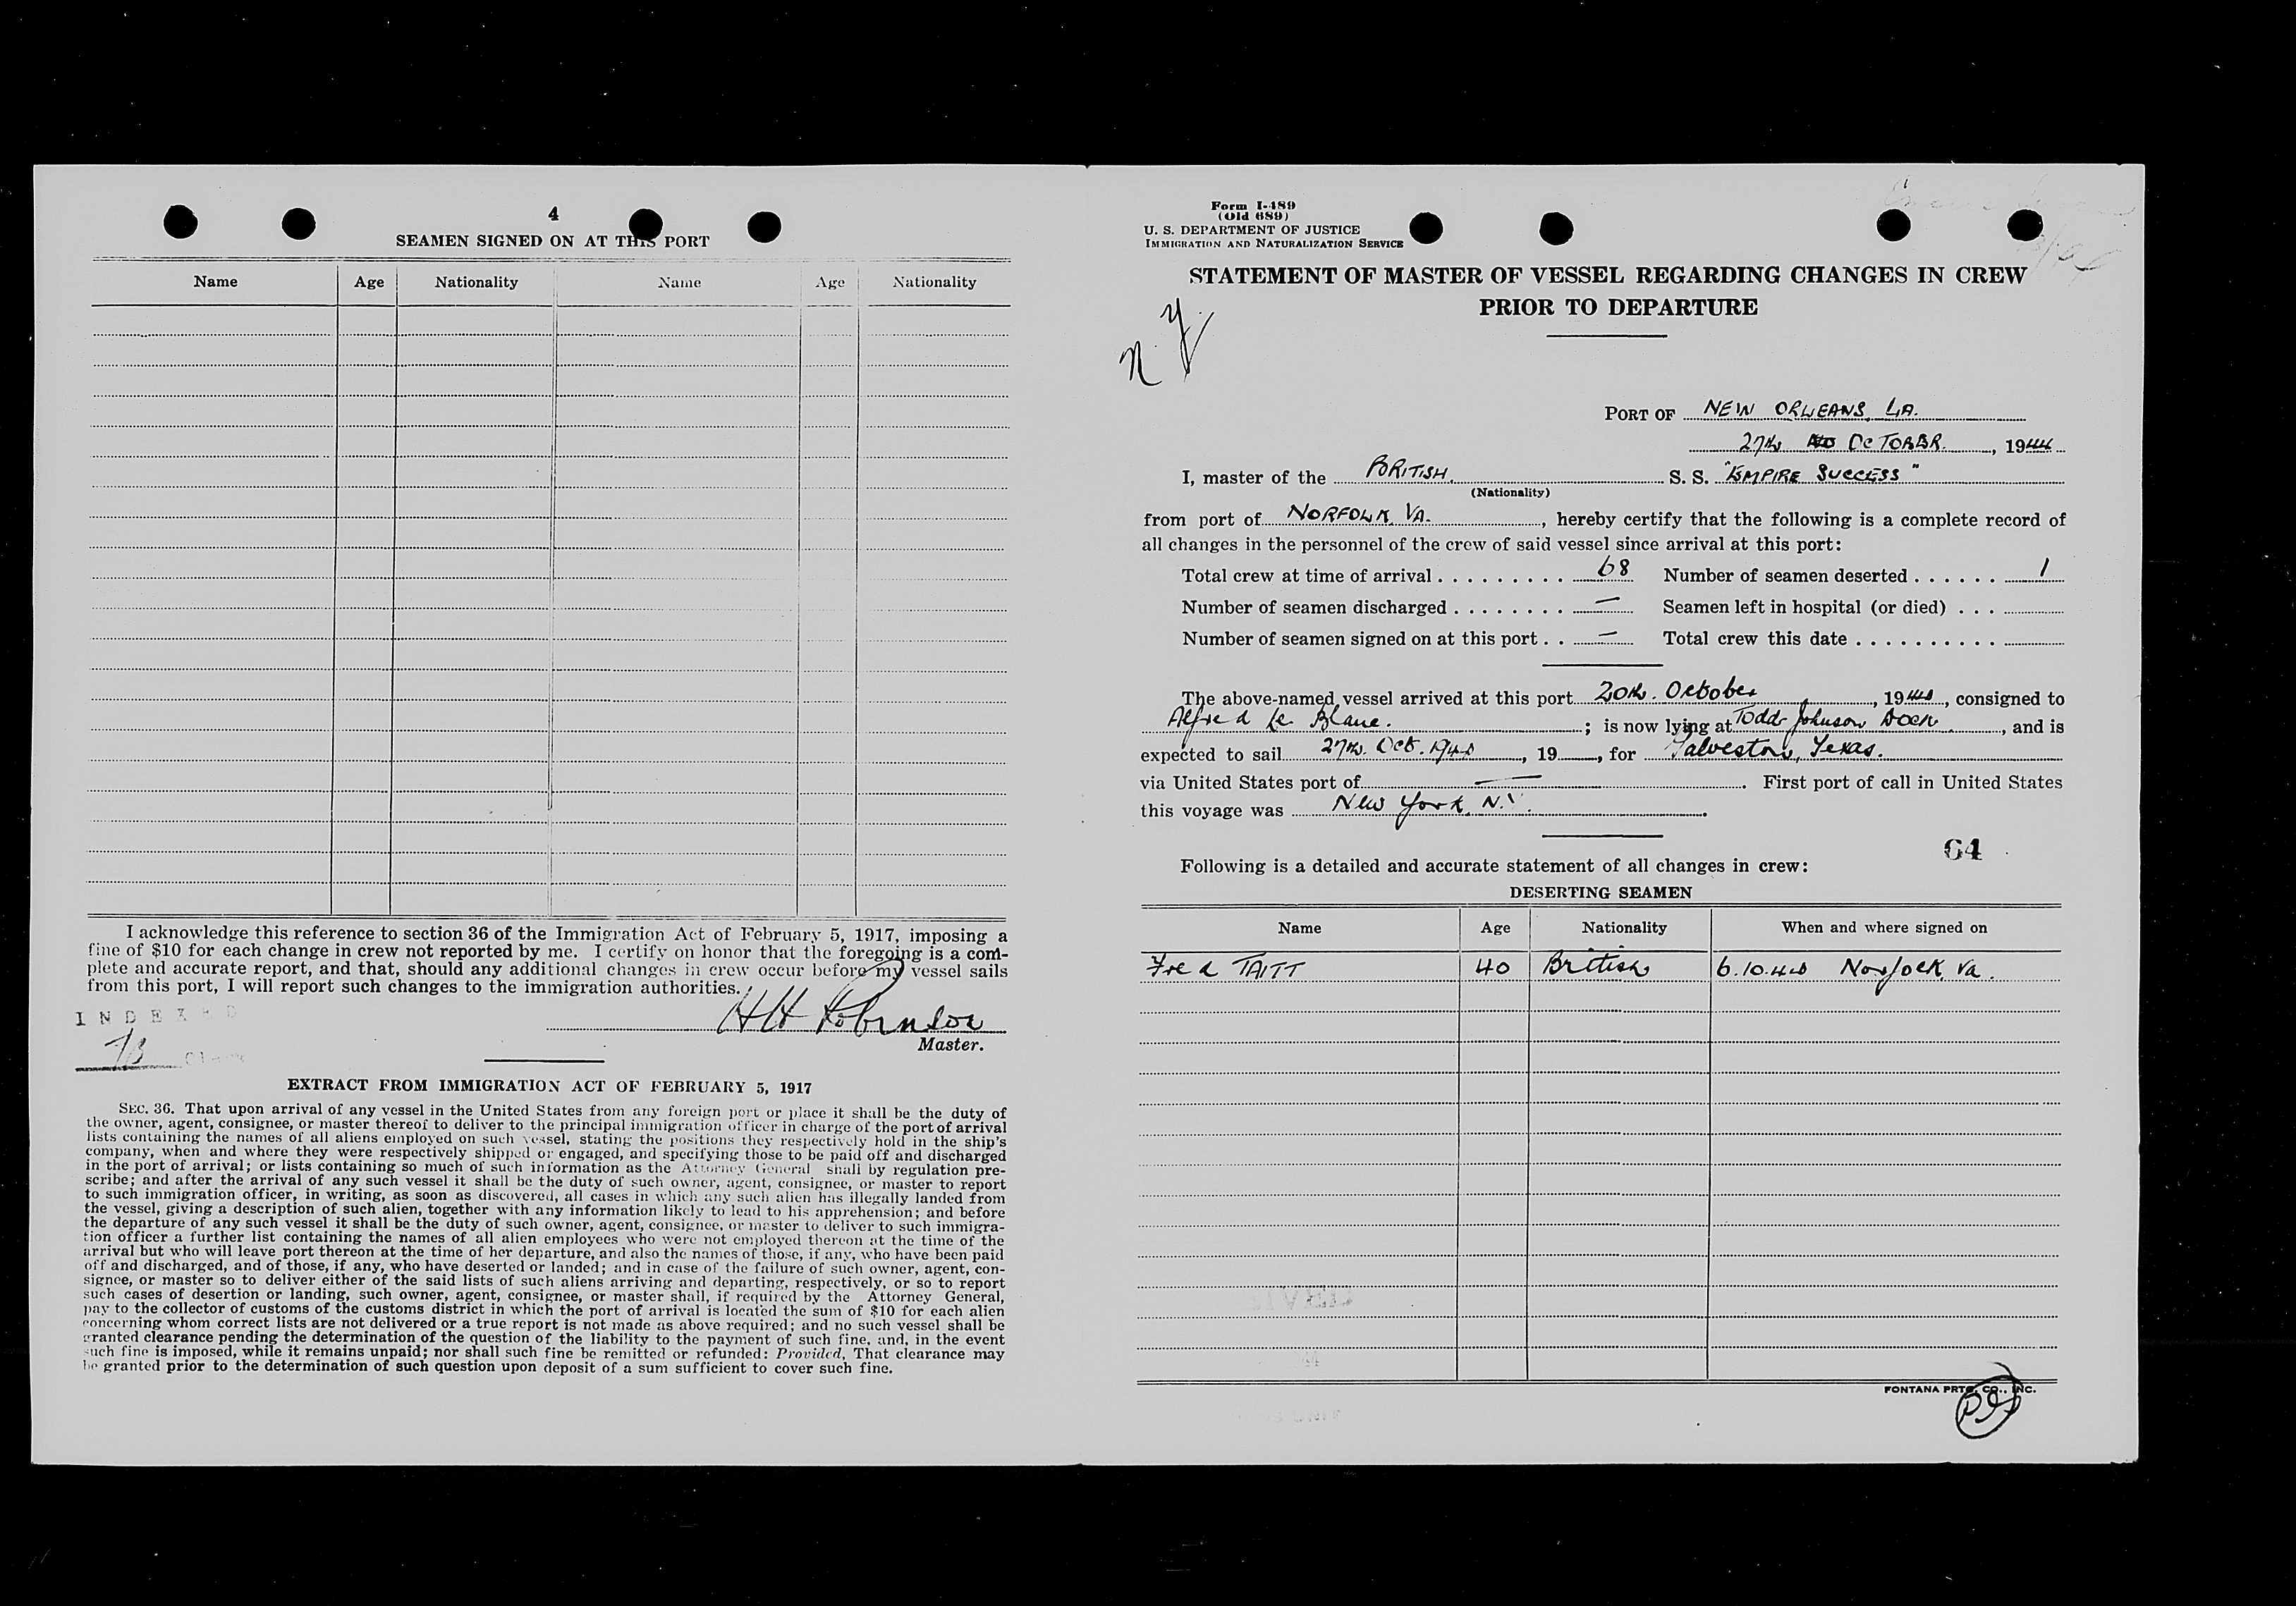 4
SEAMEN SIGNED ON AT THIS PORT
Name Age Nationality Name Age Nationality
I acknowledge this reference to section 36 of the Immigration Act of February 5, 1917, imposing a
fine of $10 for each change in crew not reported by me. I certify on honor that the foregoing is a com-
plete and accurate report, and that, should any additional changes in crew occur before my vessel sails
from this port, I will report such changes to the immigration authorities.
INDEXED
H H Robinson
Clerk
Master.
EXTRACT FROM IMMIGRATION ACT OF FEBRUARY 5, 1917
SEC. 36. That upon arrival of any vessel in the United States from any foreign port or place it shall be the duty of
the owner, agent, consignee, or master thereof to deliver to the principal immigration officer in charge of the port of arrival
lists containing the names of all aliens employed on such vessel, stating the positions they respectively hold in the ship's
company, when and where they were respectively shipped or engaged, and specifying those to be paid off and discharged
in the port of arrival; or lists containing so much of such information as the Attorney General shall by regulation pre-
scribe; and after the arrival of any such vessel it shall be the duty of such owner, agent, consignee, or master to report
to such immigration officer, in writing, as soon as discovered, all cases in which any such alien has illegally landed from
the vessel, giving a description of such alien, together with any information likely to lead to his apprehension; and before
the departure of any such vessel it shall be the duty of such owner, agent, consignee, or master to deliver to such immigra-
tion officer a further list containing the names of all alien employees who were not employed thereon at the time of the
arrival but who will leave port thereon at the time of her departure, and also the names of those, if any, who have been paid
off and discharged, and of those, if any, who have deserted or landed; and in case of the failure of such owner, agent, con-
signee, or master so to deliver either of the said lists of such aliens arriving and departing, respectively, or so to report
such cases of desertion or landing, such owner, agent, consignee, or master shall, if required by the Attorney General,
pay to the collector of customs of the customs district in which the port of arrival is located the sum of $10 for each alien
concerning whom correct lists are not delivered or a true report is not made as above required; and no such vessel shall be
granted clearance pending the determination of the question of the liability to the payment of such fine, and, in the event
such fine is imposed, while it remains unpaid; nor shall such fine be remitted or refunded: Provided, That clearance may
be granted prior to the determination of such question upon deposit of a sum sufficient to cover such fine.
Form I-489
(Old 689)
U. S. DEPARTMENT OF JUSTICE
IMMIGRATION AND NATURALIZATION SERVICE
STATEMENT OF MASTER OF VESSEL REGARDING CHANGES IN CREW
PRIOR TO DEPARTURE
N.Y.
PORT OF NEW ORLEANS, LA.
27th OCTOBER, 1944
I, master of the BRITISH. S. S. "EMPIRE SUCCESS"
(Nationality)
from port of NORFOLK, VA., hereby certify that the following is a complete record of
all changes in the personnel of the crew of said vessel since arrival at this port:
Total crew at time of arrival 68 Number of seamen deserted 1
Number of seamen discharged — Seamen left in hospital (or died)
Number of seamen signed on at this port — Total crew this date
The above-named vessel arrived at this port 20th. October, 1944, consigned to
Alfred Le Blanc.; is now lying at Todd Johnson Dock., and is
expected to sail 27th. Oct. 1944, 19, for Galveston, Texas.
via United States port of —. First port of call in United States
this voyage was New York, N.Y.
64
Following is a detailed and accurate statement of all changes in crew:
DESERTING SEAMEN
Name Age Nationality When and where signed on
Fred TAITT 40 British 6.10.44 Norfolk, Va.
FONTANA PRTG. CO., INC.